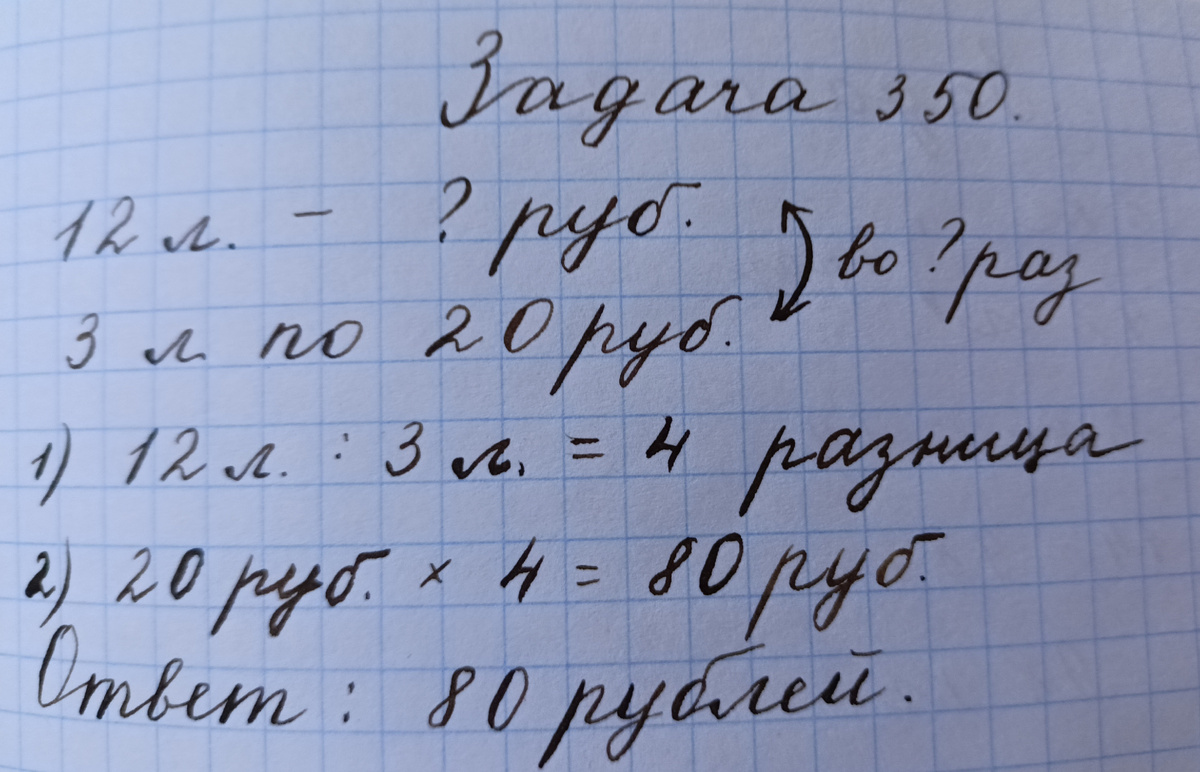 Задача 350.
12 л. - ? руб.
во ? раз
3 л. по 20 руб.
1) 12 л. : 3 л. = 4 разница
2) 20 руб. × 4 = 80 руб.
Ответ : 80 рублей.